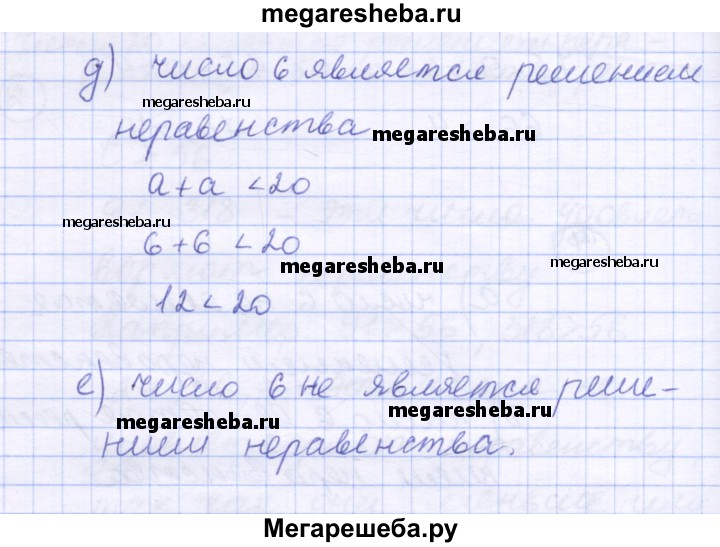 megaresheba.ru
д) число 6 является решением
megaresheba.ru
неравенства megaresheba.ru
a + a < 20
megaresheba.ru
6 + 6 < 20
megaresheba.ru
12 < 20
е) число 6 не является реше-
megaresheba.ru megaresheba.ru
нием неравенства.
Мегарешеба.ру